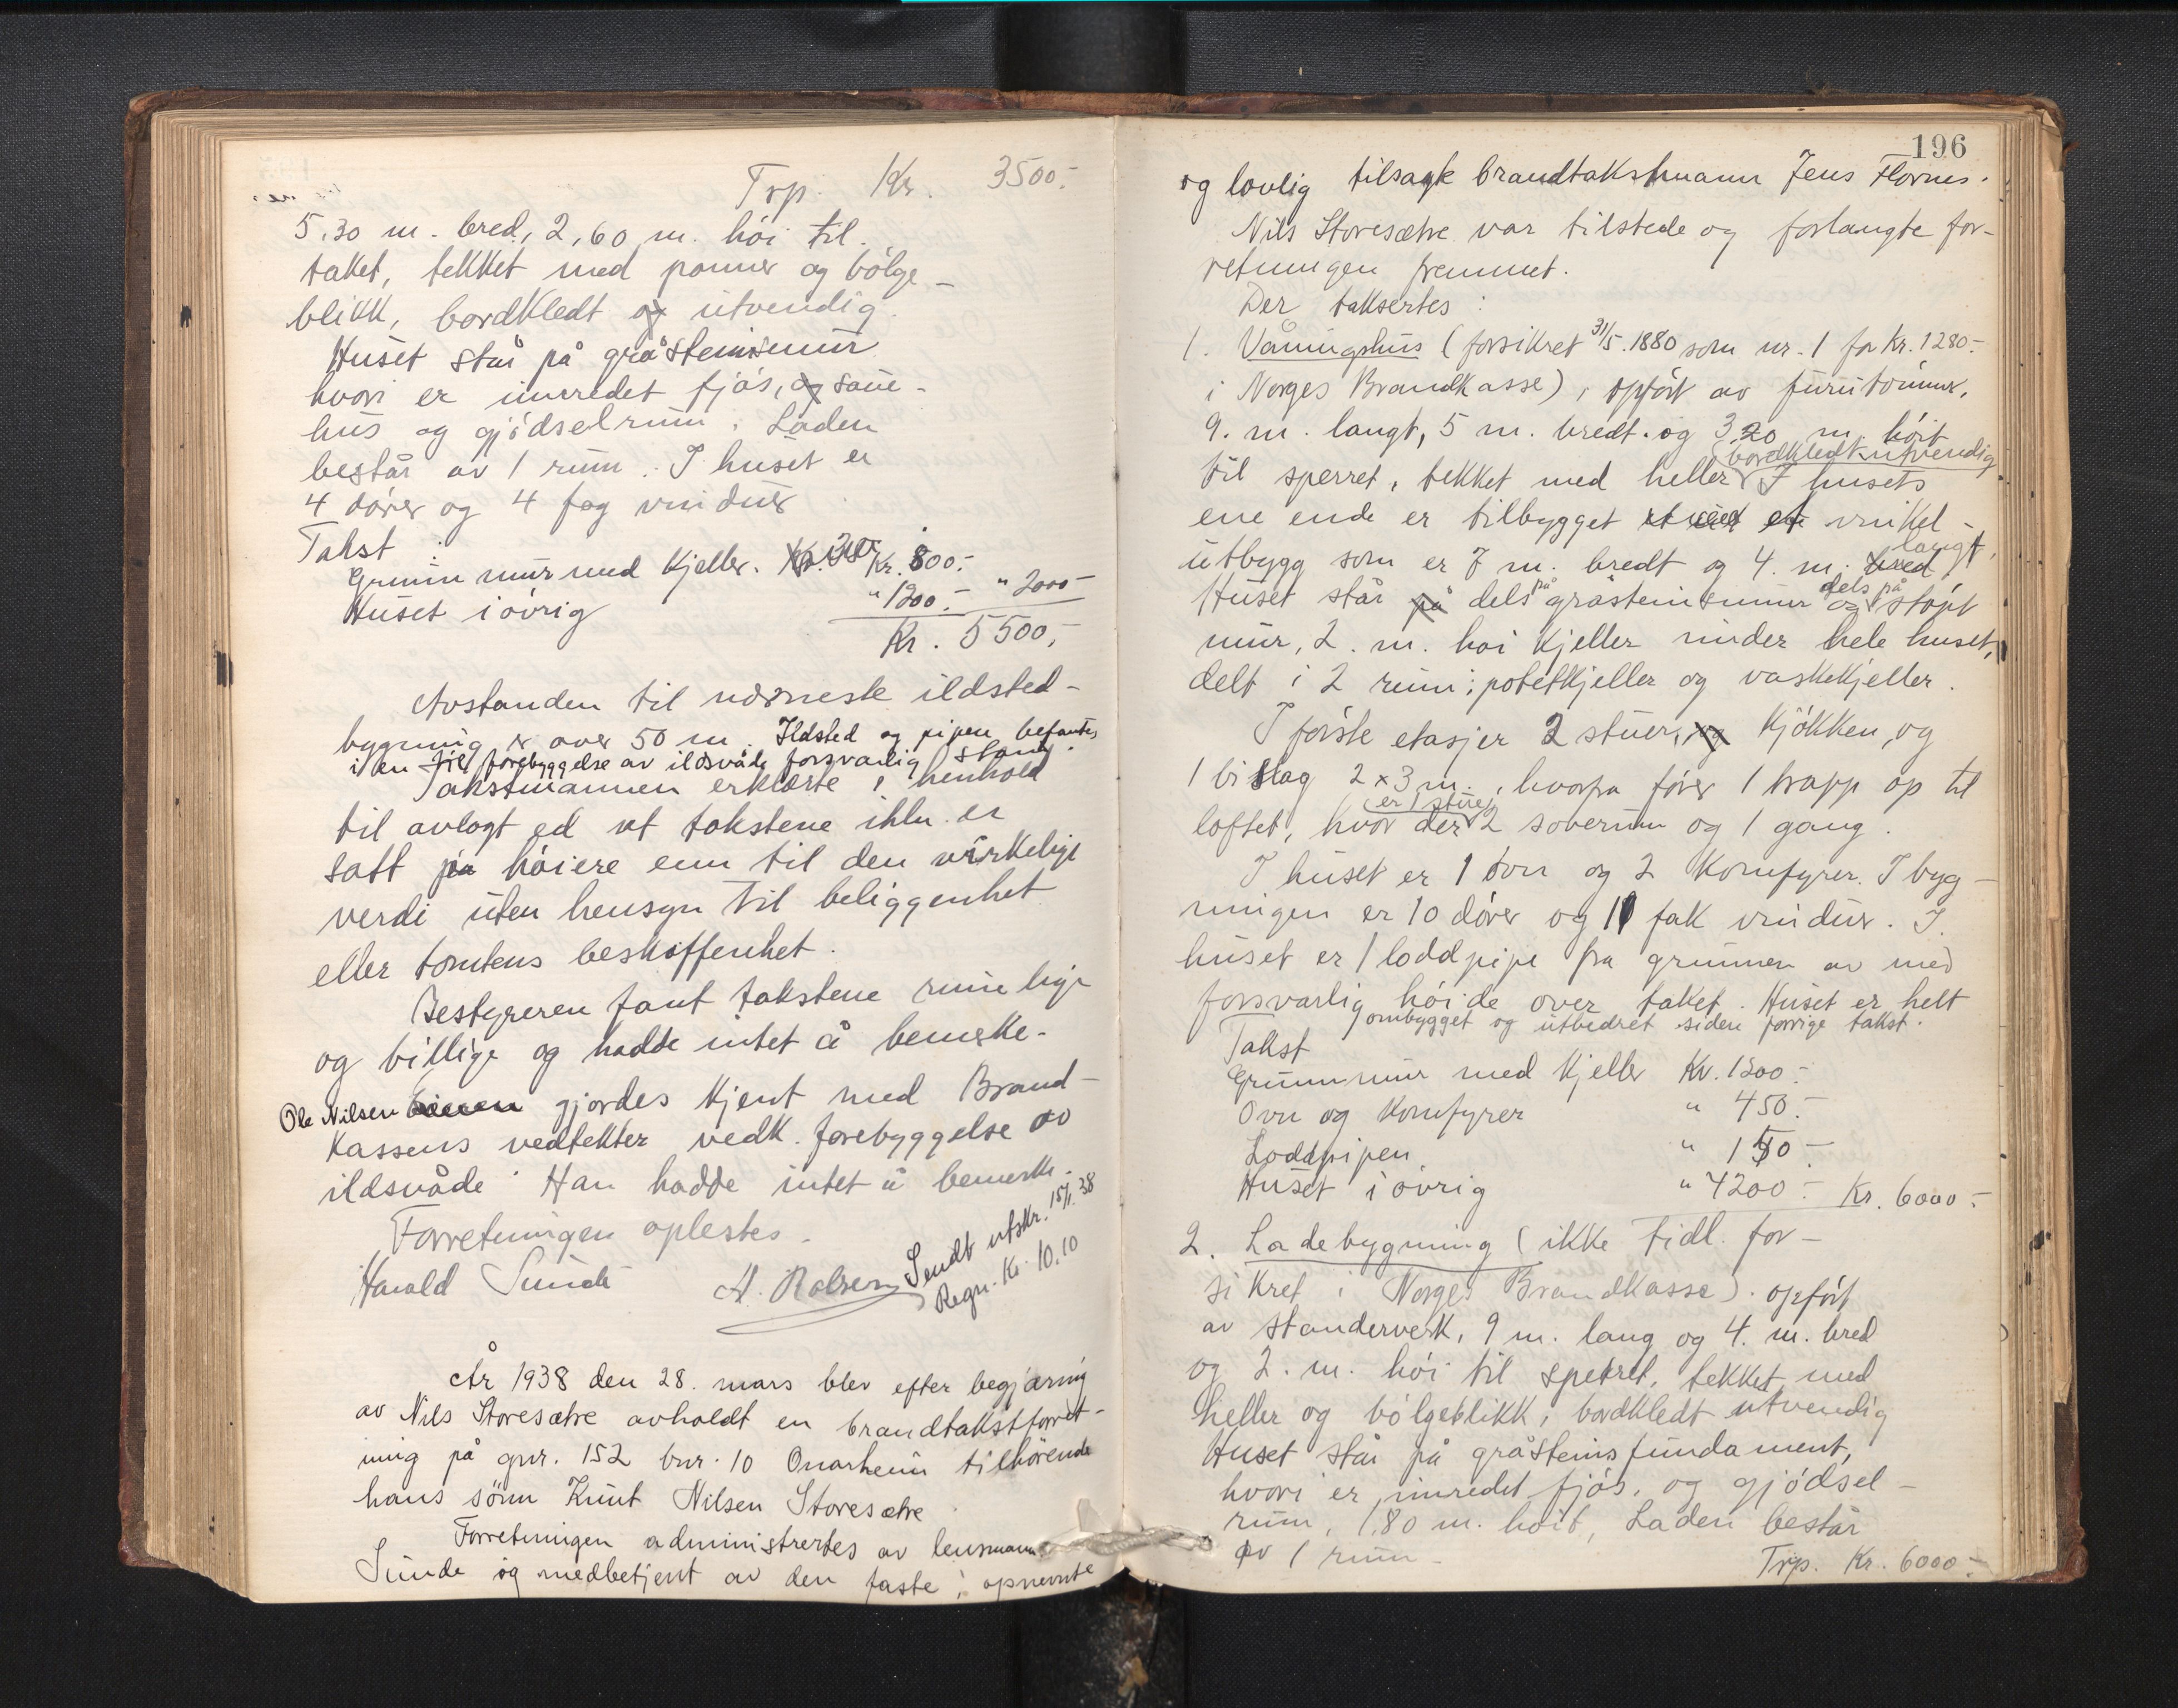 Trp. Kr. 3500.-
5,30 m. bred, 2,60 m. høi til
taket, tekket med panner og bølge-
blikk, bordkledt og utvendig.
Huset står på gråsteinsmur
hvori er innredet fjøs, og saue-
hus og gjødselrum. Laden
består av 1 rum. I huset er
4 dører og 4 fag vinduer
Takst:
Grunnmur med kjeller. Kr. 800.-
Huset i øvrig " 1200.- " 2000.-
Kr. 5500,-
Avstanden til nærmeste ildsted-
bygning er over 50 m. Ildsted og pipen befantes
i en til forebyggelse av ildsvåde forsvarlig stand.
Takstmannen erklærte i henhold
til avlagt ed at takstene ikke er
satt på høiere enn til den virkelige
verdi uten hensyn til beliggenhet
eller tomtens beskaffenhet.
Bestyreren fant takstene rimelige
og billige og hadde intet å bemerke.
Ole Nilsen gjordes kjent med Brand-
kassens vedtekter vedk. forebyggelse av
ildsvåde. Han hadde intet å bemerke.
Forretningen oplestes.
Harald Sunde A. Rolsen
Sendt utskr. 15/1. 38
Regn. Kr. 10.10
År 1938 den 28. mars blev efter begjæring
av Nils Storesætre avholdt en brandtakstforret-
ning på gnr. 152 bnr. 10 Onarheim tilhørende
hans sønn Knut Nilsen Storesætre
Forretningen administrertes av lensmann
Sunde og medbetjent av den faste, opnevnte
196
og lovlig tilsagte brandtakstmann Jens Flornes.
Nils Storesætre var tilstede og forlangte for-
retningen fremmet.
Der taksertes:
1. Våningshus (forsikret 31/5.1880 som nr. 1 for Kr. 1280.-
i Norges Brandkasse), opført av furutømmer,
9. m. langt, 5 m. bredt. og 3.20 m. høit
bordkledt utvendig
til sperret, tekket med heller. I husets
ene ende er tilbygget et vinkel-
utbygg som er 7 m. bredt og 4. m. langt,
Huset står dels på gråsteinsmur og dels på støpt
mur, 2. m. høi kjeller under hele huset,
delt i 2 rum: potetkjeller og vaskekjeller.
I første etasjer 2 stuer, og kjøkken, og
1 bislag 2 x 3 m., hvorfra fører 1 trapp op til
er 1 stue,
loftet, hvor der 2 soverum og 1 gang.
I huset er 1 ovn og 2 komfyrer. I byg-
ningen er 10 dører og 11 fak vinduer. I
huset er 1 loddpipe fra grunnen av med
forsvarlig høide over taket. Huset er helt
ombygget og utbedret siden forrige takst.
Takst
Grunnmur med kjeller Kr. 1200.-
Ovn og komfyrer " 450.-
Loddpipen " 150.-
Huset i øvrig " 4200.- Kr. 6000.-
2. Ladebygning (ikke tidl. for-
sikret i Norges Brandkasse). opført
av standerverk, 9 m. lang og 4. m. bred
og 2. m. høi til sperret, tekket med
heller og bølgeblikk, bordkledt utvendig
Huset står på gråsteinsfundament,
hvori er innredet fjøs, og gjødsel-
rum, 1,80 m. høit, Laden består
av 1 rum.
Trp. Kr. 6000.-